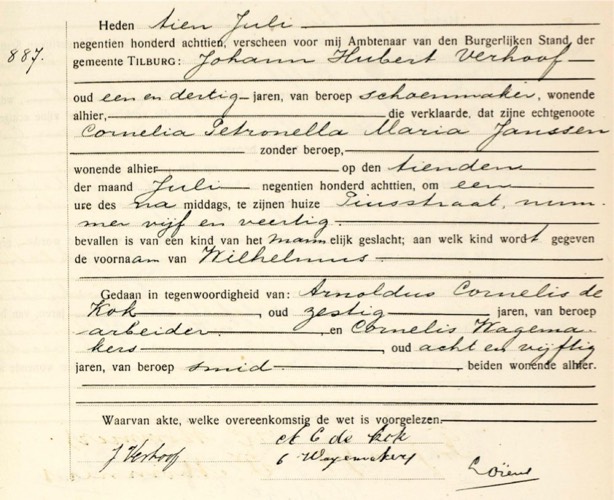 Heden tien Juli
887.
negentien honderd achttien, verscheen voor mij Ambtenaar van den Burgerlijken Stand, der
gemeente TILBURG: Johann Hubert Verhoof
oud een en dertig jaren, van beroep schoenmaker, wonende
alhier, die verklaarde, dat zijne echtgenoote
Cornelia Petronella Maria Janssen
zonder beroep,
wonende alhier op den tienden
der maand Juli negentien honderd achttien, om een
ure des na middags, te zijnen huize Piusstraat, num-
mer vijf en veertig
bevallen is van een kind van het mannelijk geslacht; aan welk kind wordt gegeven
de voornaam van Wilhelmus
Gedaan in tegenwoordigheid van: Arnoldus Cornelis de
Kok, oud zestig jaren, van beroep
arbeider, en Cornelis Wagema-
kers, oud acht en vijftig
jaren, van beroep smid, beiden wonende alhier.
Waarvan akte, welke overeenkomstig de wet is voorgelezen.
A C de kok
J Verhoof
C Wagemakers